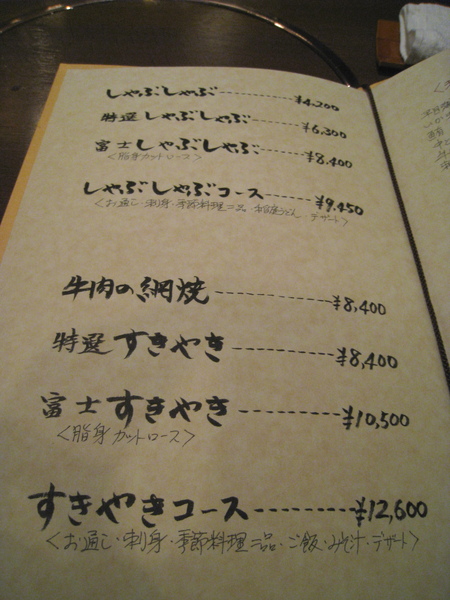 しゃぶしゃぶ---------¥4,200
特選しゃぶしゃぶ---------¥6,300
富士しゃぶしゃぶ---------¥8,400
＜脂身カットロース＞
しゃぶしゃぶコース---------¥9,450
＜お通し・刺身・季節料理二品・稲庭うどん・デザート＞
牛肉の網焼------------¥8,400
特選すきやき------------¥8,400
富士すきやき------------¥10,500
＜脂身カットロース＞
すきやきコース------------¥12,600
＜お通し・刺身・季節料理二品・ご飯・みそ汁・デザート＞